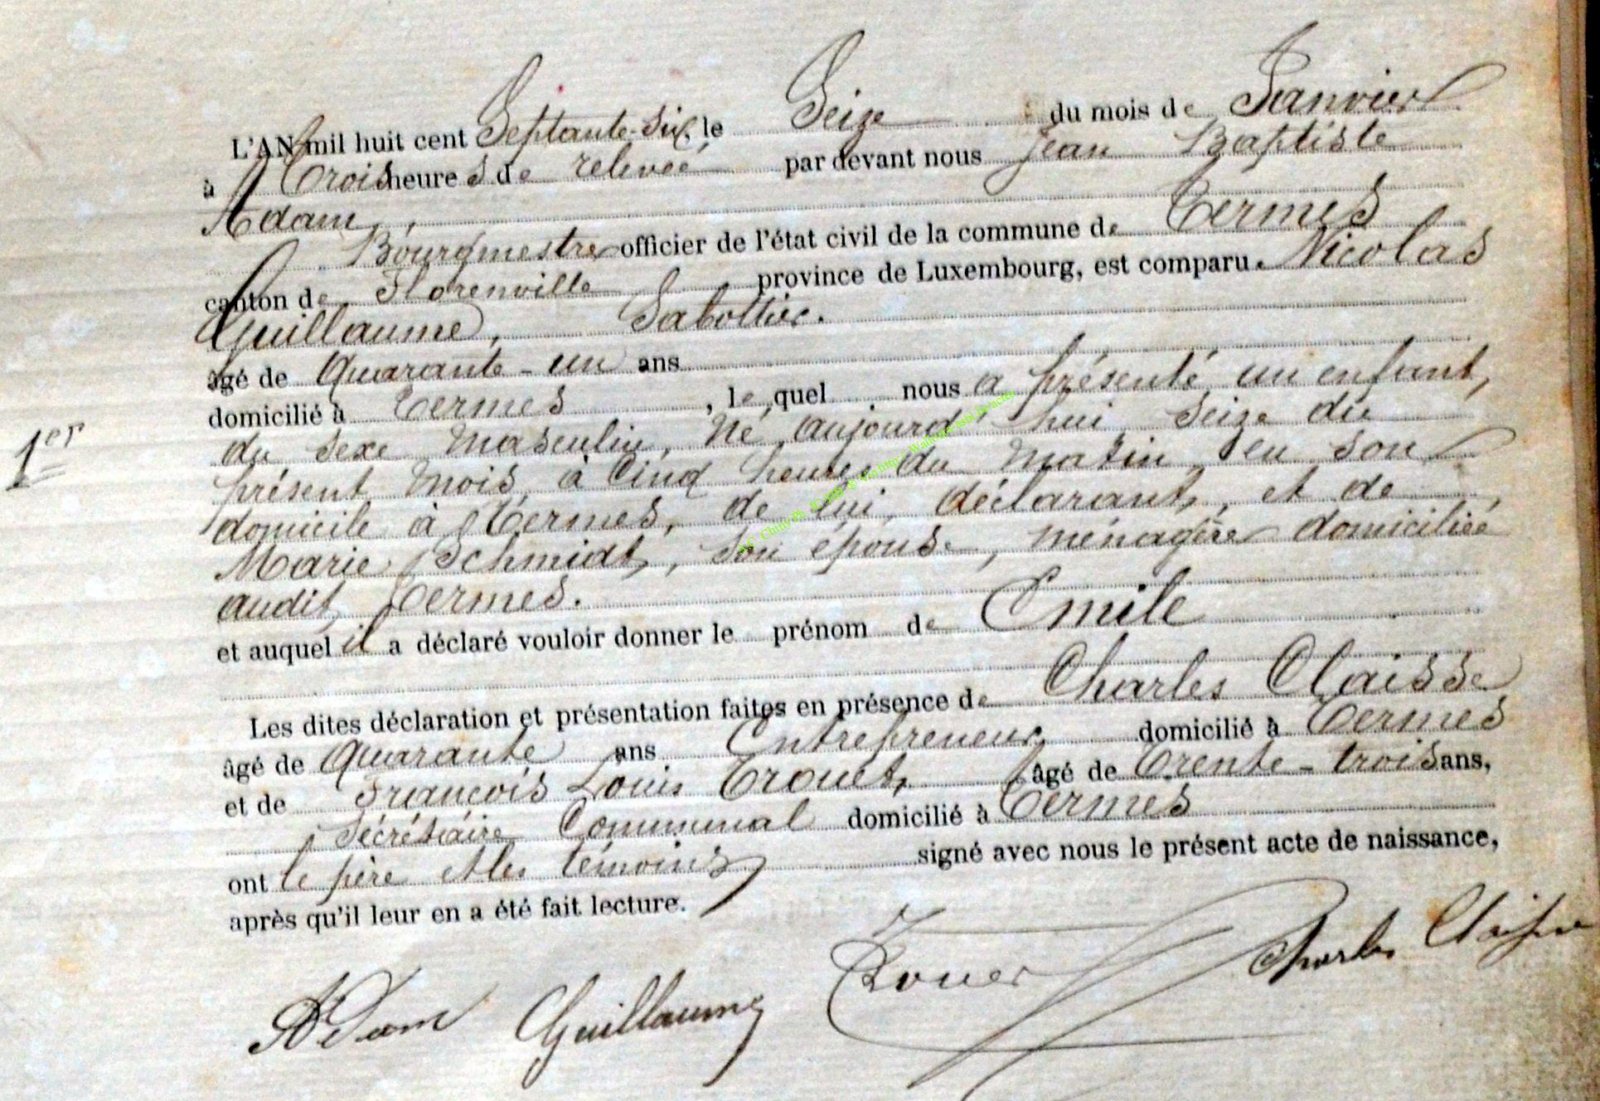 L'AN mil huit cent Septante-Six, le Seize du mois de Janvier
à Trois heures de relevée par devant nous Jean Baptiste
Adam,
Bourgmestre officier de l'état civil de la commune de Termes
canton de Florenville province de Luxembourg, est comparu Nicolas
Guillaume, Sabottier.
âgé de Quarante-un ans
domicilié à Termes, le quel nous a présenté un enfant,
1er
du sexe Masculin, Né aujourd'hui Seize du
présent Mois, à Cinq heures du Matin, en son
domicile à Termes, de lui, déclarant, et de
Marie Schmidt, son épouse, ménagère domiciliée
audit Termes.
et auquel il a déclaré vouloir donner le prénom de Emile
Les dites déclaration et présentation faites en présence de Charles Claisse
âgé de Quarante ans Entrepreneur domicilié à Termes
et de François Louis Trouet, âgé de Trente-trois ans,
Sécrétaire Communal domicilié à Termes
ont le père et les témoins signé avec nous le présent acte de naissance,
après qu'il leur en a été fait lecture.
Adam Guillaume Charles Claisse